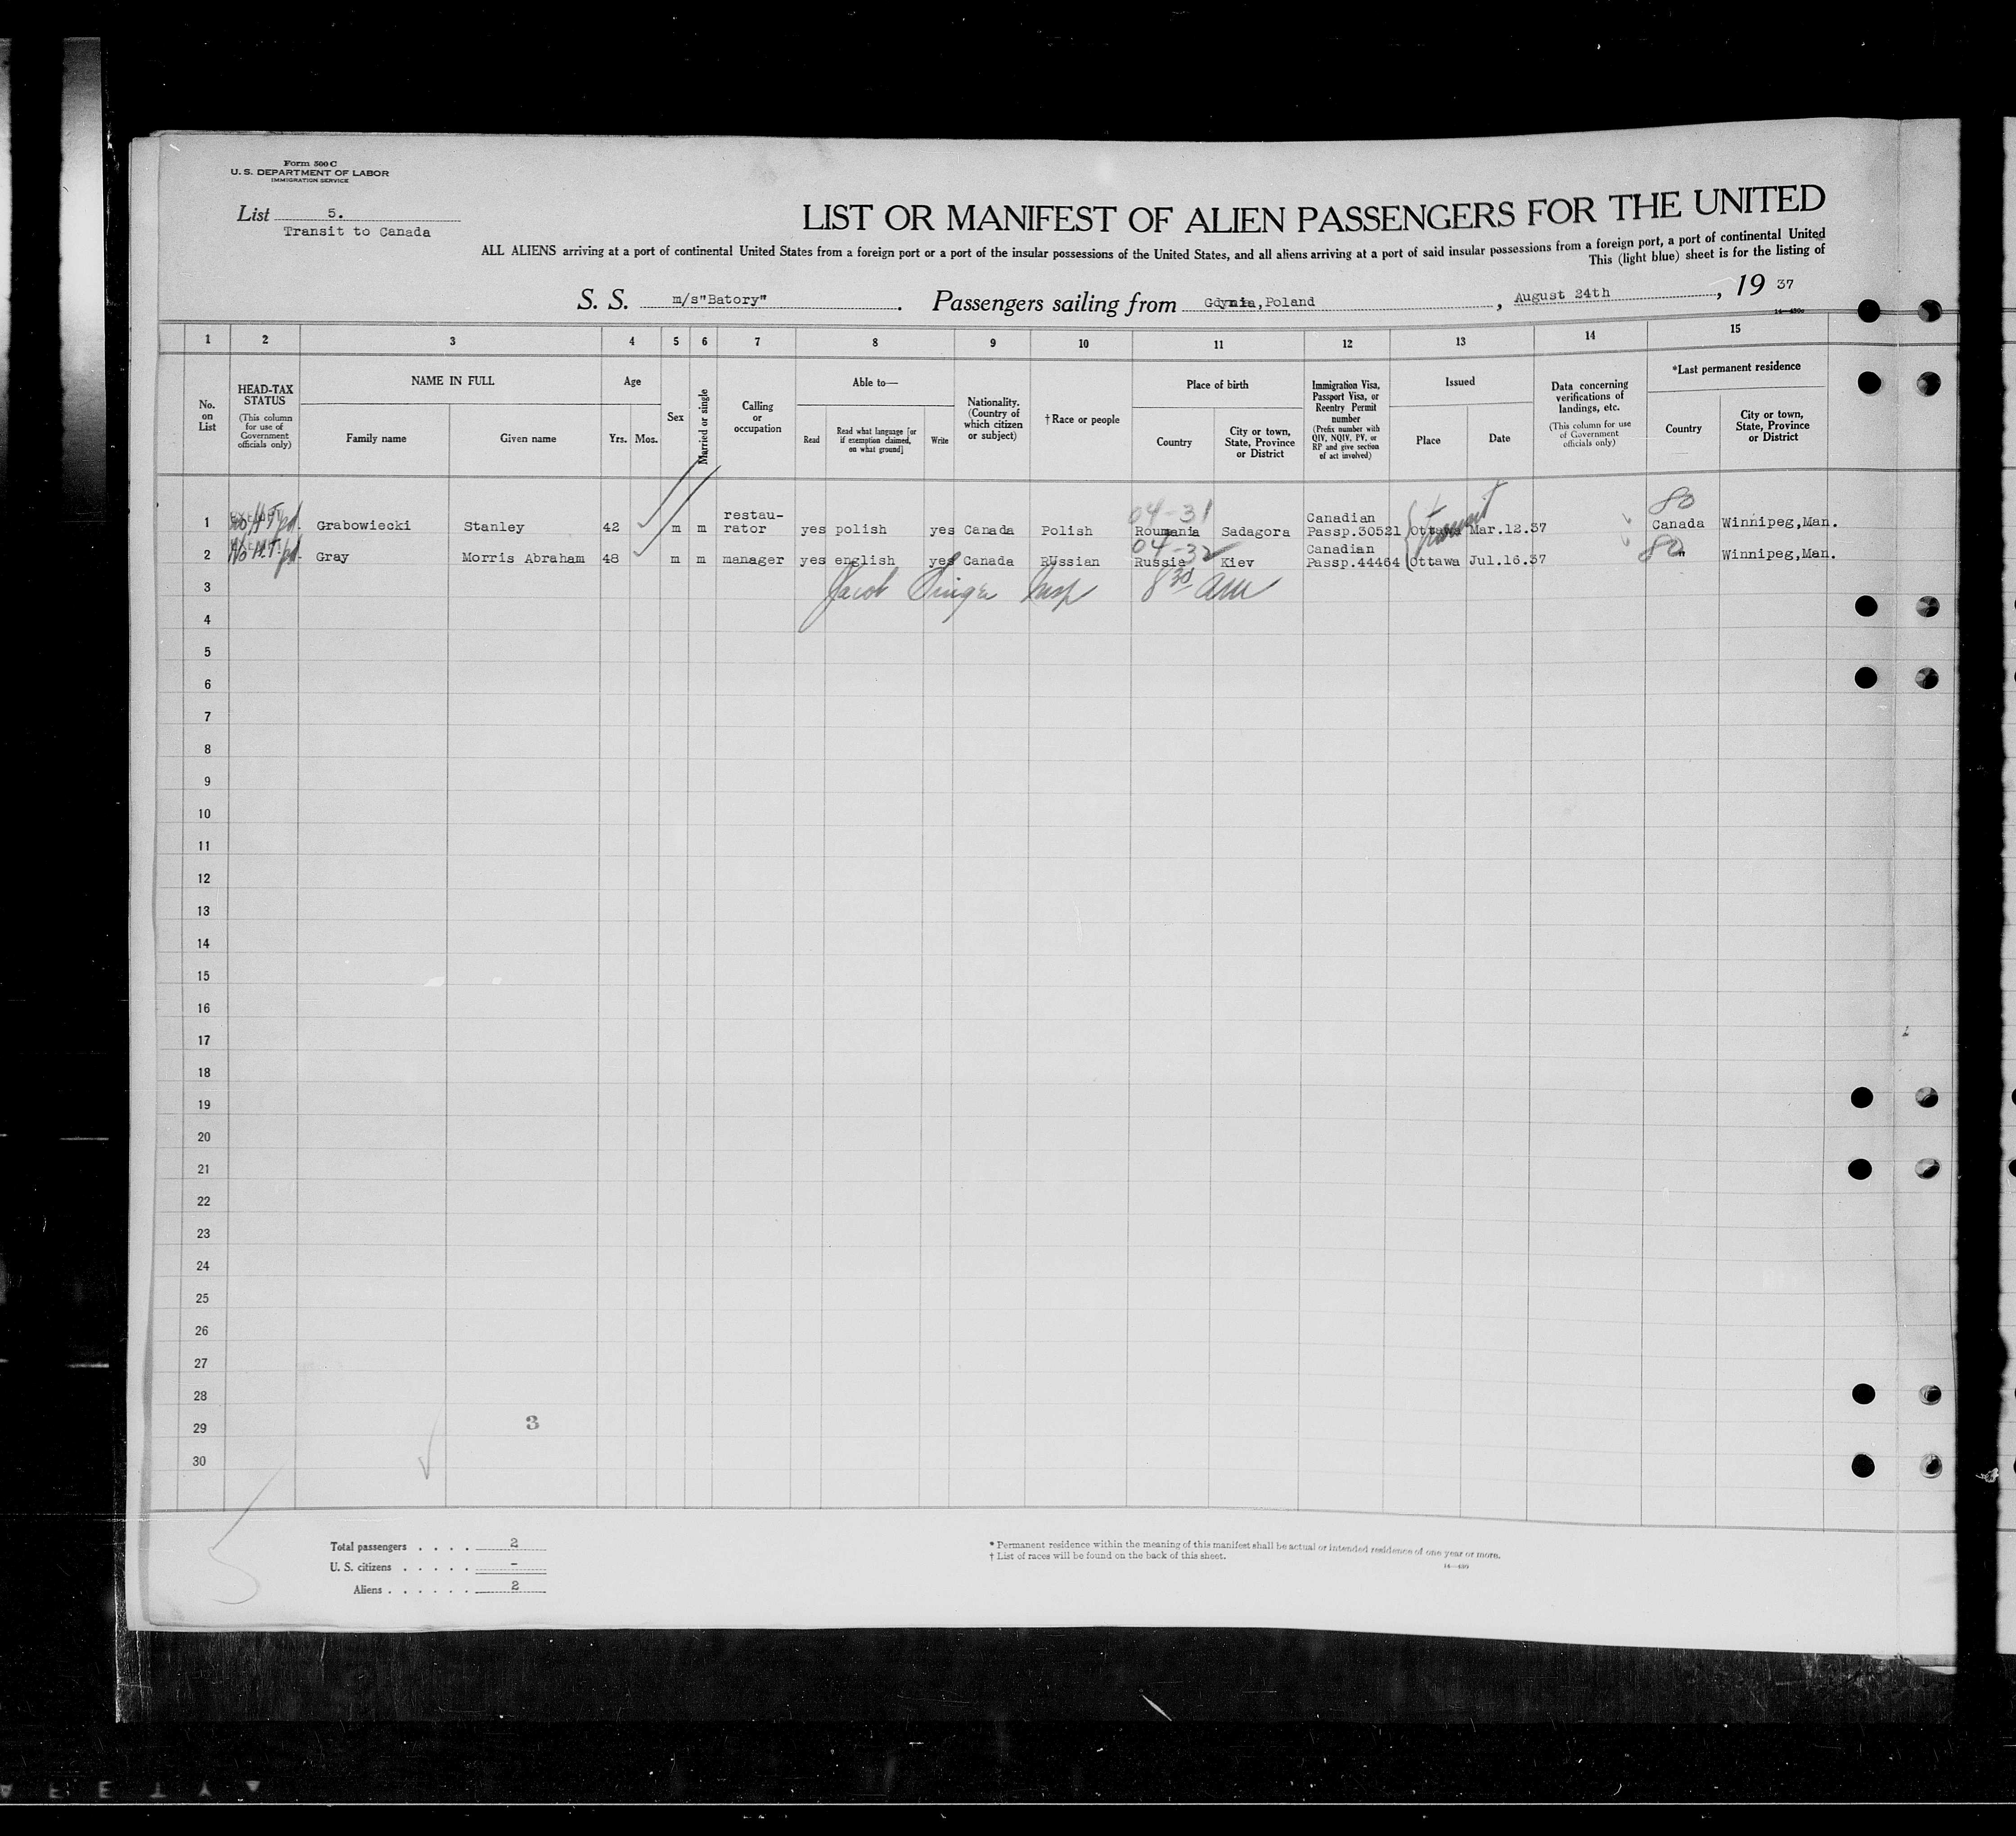 Form 500 C
U. S. DEPARTMENT OF LABOR
IMMIGRATION SERVICE
List 5.
Transit to Canada
LIST OR MANIFEST OF ALIEN PASSENGERS FOR THE UNITED
ALL ALIENS arriving at a port of continental United States from a foreign port or a port of the insular possessions of the United States, and all aliens arriving at a port of said insular possessions from a foreign port, a port of continental United
This (light blue) sheet is for the listing of
S. S. m/s"Batory". Passengers sailing from Gdynia,Poland, August 24th, 19 37
1 2 3 4 5 6 7 8 9 10 11 12 13 14 15
No. on List
HEAD-TAX STATUS (This column for use of Government officials only)
NAME IN FULL
Family name
Given name
Age
Yrs. Mos.
Sex
Married or single
Calling or occupation
Able to—
Read
Read what language [or if exemption claimed, on what ground]
Write
Nationality. (Country of which citizen or subject)
† Race or people
Place of birth
Country
City or town, State, Province or District
Immigration Visa, Passport Visa, or Reentry Permit number (Prefix number with QIV, NQIV, PV, or RP and give section of act involved)
Issued
Place
Date
Data concerning verifications of landings, etc. (This column for use of Government officials only)
*Last permanent residence
Country
City or town, State, Province or District
04-31 transit 80
1 Grabowiecki Stanley 42 m m restau-rator yes polish yes Canada Polish Roumania Sadagora Canadian Passp.30521 Ottawa Mar.12.37 Canada Winnipeg,Man.
04-32 80
2 Gray Morris Abraham 48 m m manager yes english yes Canada RUssian Russia Kiev Canadian Passp.44464 Ottawa Jul.16.37 " Winnipeg,Man.
Jacob Singer Insp 8 30 am
3
4
5
6
7
8
9
10
11
12
13
14
15
16
17
18
19
20
21
22
23
24
25
26
27
28
29
3
30
Total passengers . . . . 2
U. S. citizens . . . . . -
Aliens . . . . . . 2
* Permanent residence within the meaning of this manifest shall be actual or intended residence of one year or more.
† List of races will be found on the back of this sheet.
14—430